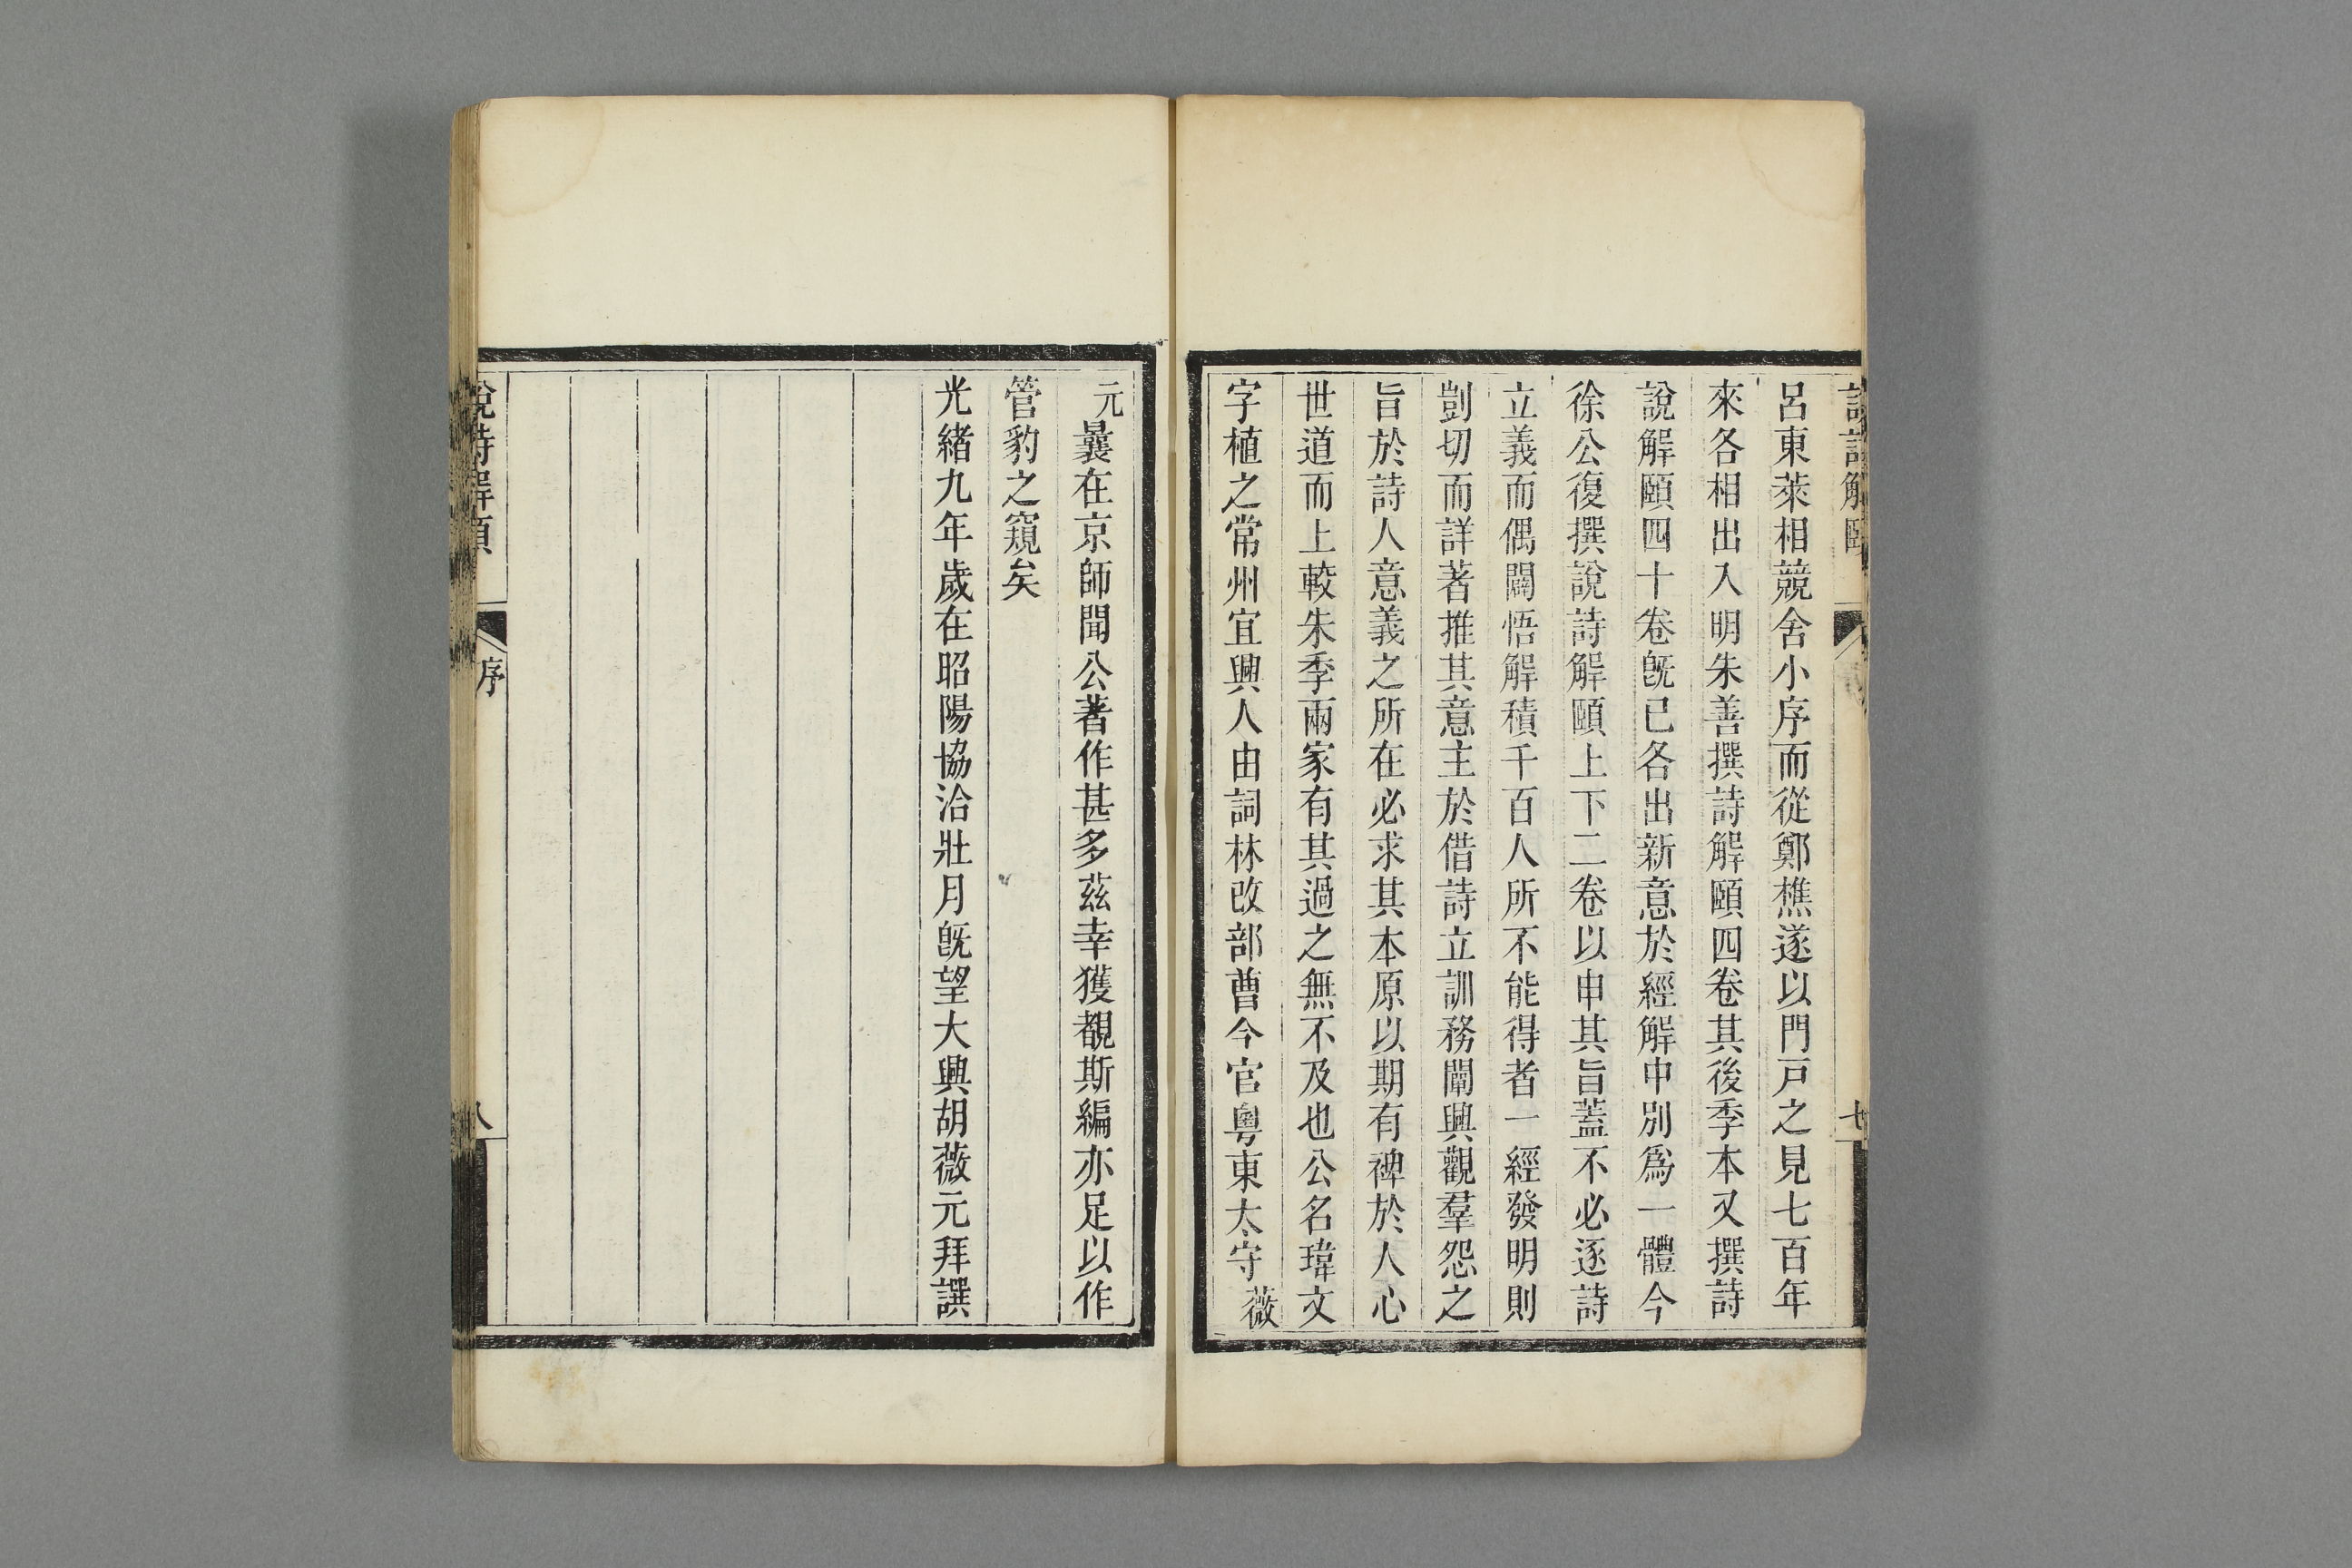 說詩解頤
七
呂東萊相競舍小序而從鄭樵遂以門戸之見七百年
來各相出入明朱善撰詩解頤四卷其後季本又撰詩
說解頤四十卷旣已各出新意於經解中別爲一體今
徐公復撰說詩解頤上下二卷以申其旨蓋不必逐詩
立義而偶闢悟解積千百人所不能得者一經發明則
剴切而詳著推其意主於借詩立訓務闡興觀羣怨之
旨於詩人意義之所在必求其本原以期有裨於人心
世道而上較朱季兩家有其過之無不及也公名瑋文
字植之常州宜興人由詞林改部曹今官粵東太守薇
元曩在京師聞公著作甚多茲幸獲覩斯編亦足以作
管豹之窺矣
光緒九年歲在昭陽協洽壯月旣望大興胡薇元拜譔
說詩解頤
序
八